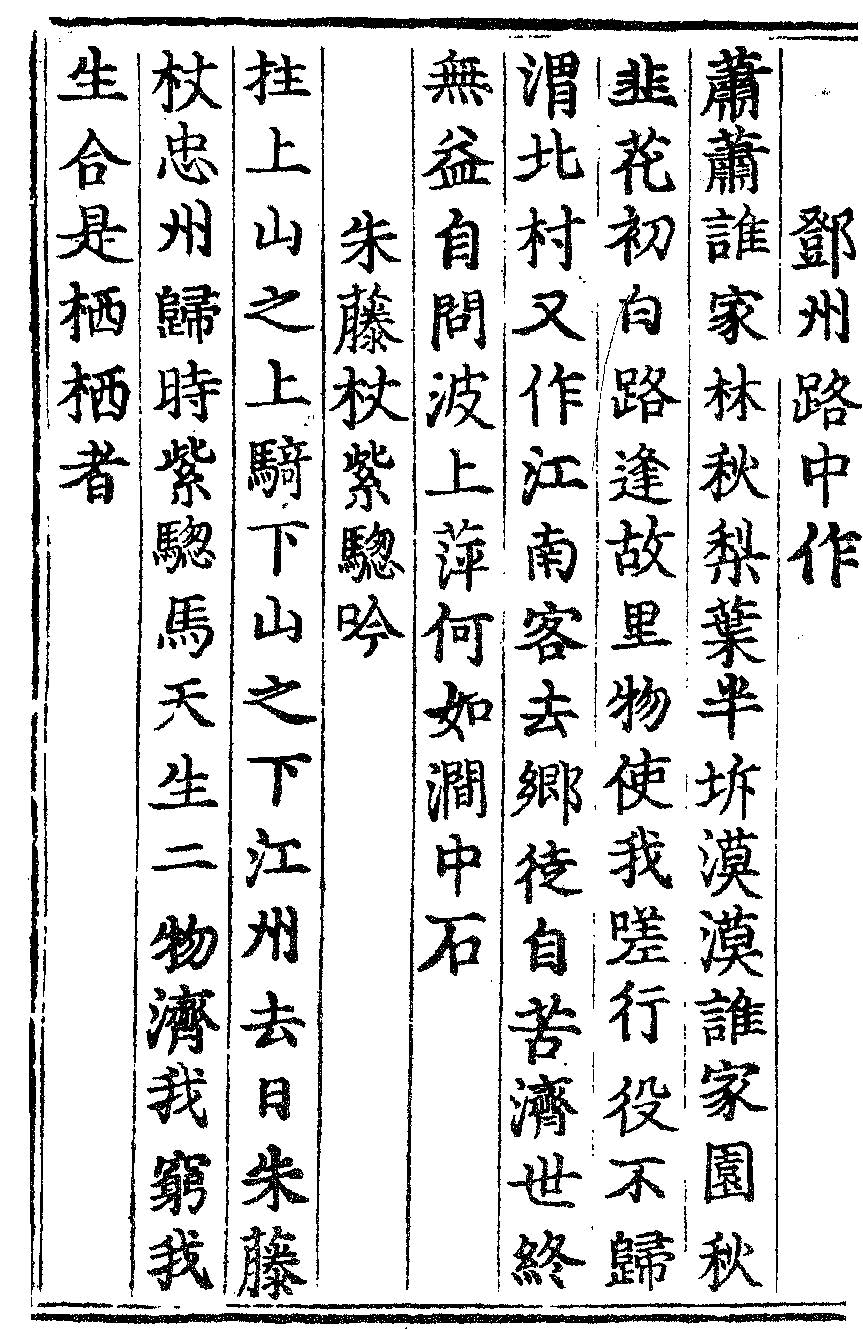 鄧州路中作
蕭蕭誰家林秋梨葉半坼漠漠誰家園秋
韭花初白路逢故里物使我嗟行役不歸
渭北村又作江南客去鄉徒自苦濟世終
無益自問波上萍何如澗中石
朱藤杖紫驄吟
拄上山之上騎下山之下江州去日朱藤
杖忠州歸時紫驄馬天生二物濟我窮我
生合是栖栖者